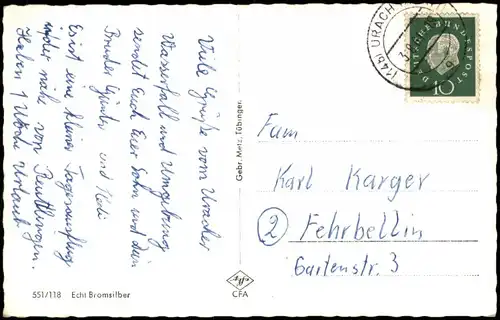 Viele Grüße vom Uracher
Wasserfall und Umgebung
sendet Euch Euer Sohn und dein
Bruder Günter und Heli
Es ist eine kleine Tagesausflug
in der nähe von Reutlingen.
Haben 1 Woche Urlaub
551/118 Echt Bromsilber
Gebr. Metz, Tübingen
Agfa
CFA
(14b) URACH
DEUTSCHE BUNDESPOST
10
Fam
Karl Karger
2 Fehrbellin
Gartenstr. 3